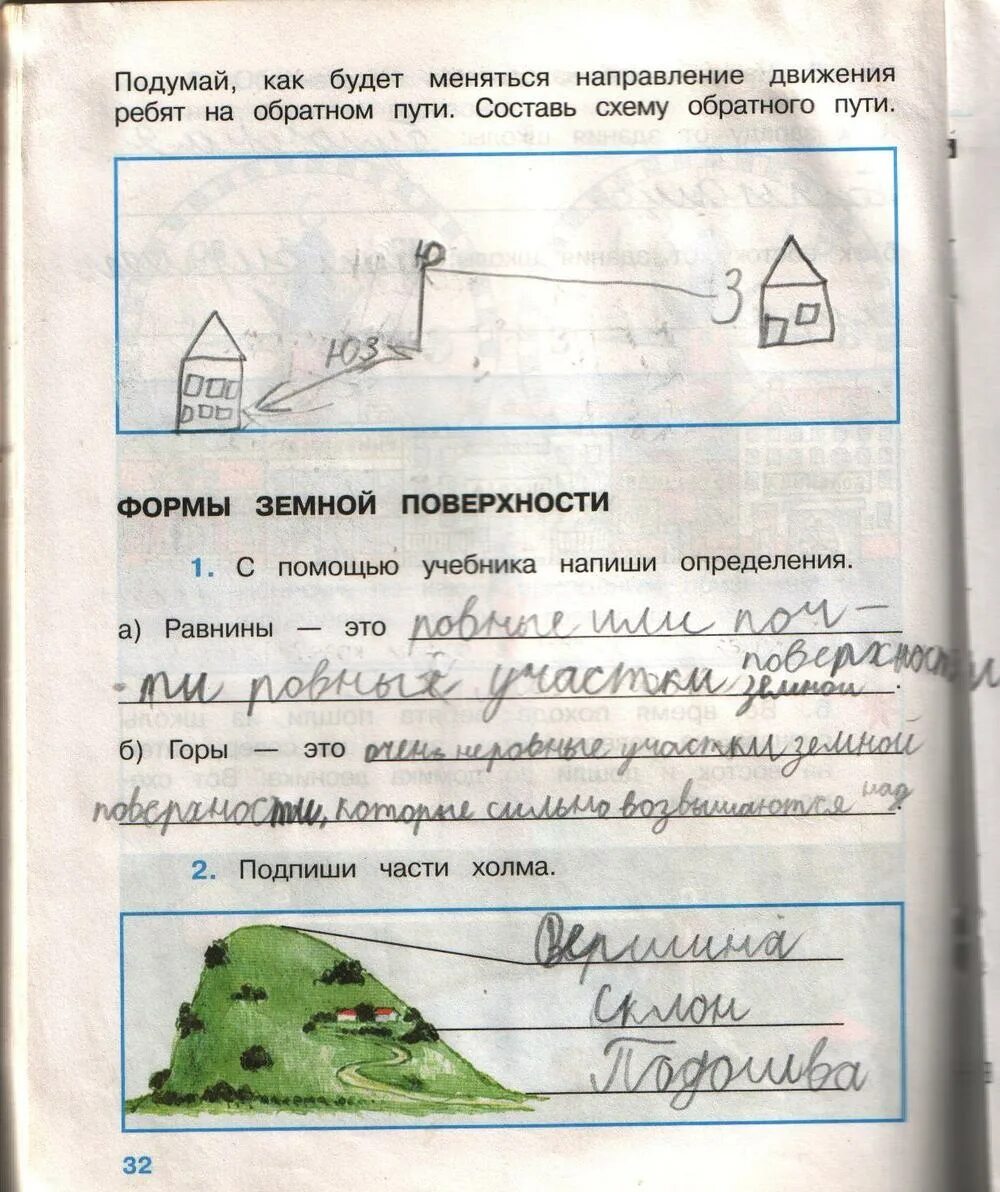 Подумай, как будет меняться направление движения
ребят на обратном пути. Составь схему обратного пути.
Ю
З
ЮЗ
ФОРМЫ ЗЕМНОЙ ПОВЕРХНОСТИ
1. С помощью учебника напиши определения.
а) Равнины — это ровные или поч-
ти ровных участки земной поверхности.
б) Горы — это очень неровные участки земной
поверхности, которые сильно возвышаются над.
2. Подпиши части холма.
Вершина
Склон
Подошва
32